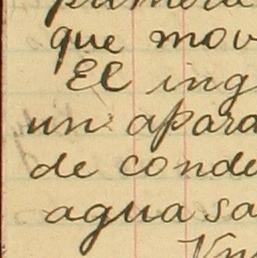 primera
que mov
El ing
un apara
de conde
agua sa